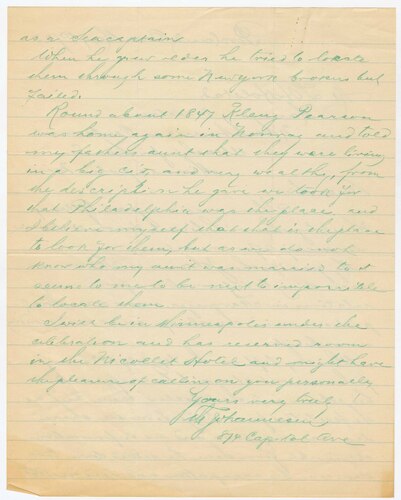 as a Seacaptain
When he grew older he tried to locate
them through some New york brokers but
failed.
Round about 1847 Kleng Pearson
was home again in Norway and told
my fathers aunt that they were living
in a big city and very wealthy, from
the description he give we took for
that Philadelphia was the place, and
I believe myself that that is the place
to look for them, but as we do not
know who my aunt was married to it
seems to me to be next to impossible
to locate them
I will be in Minneapolis under the
celebration and has reserved room
in the Nicollet Hotel and might have
the pleasure of calling on you personally
Yours very truly
Johannesen
Capitol Ave